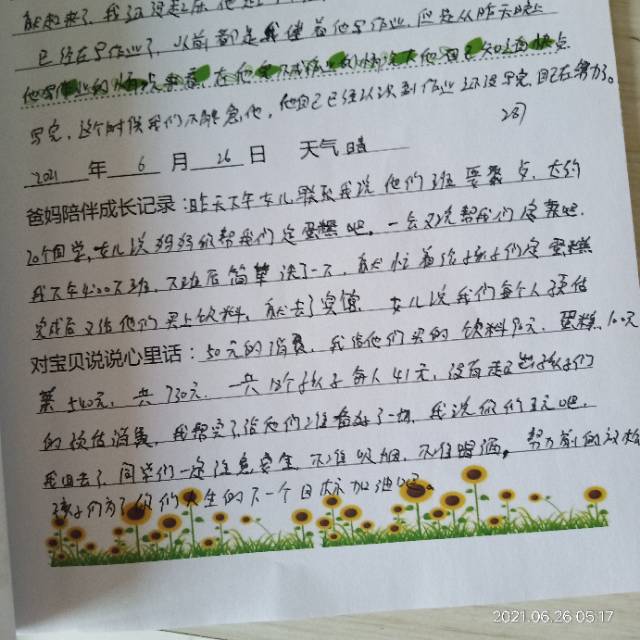 能起来了，我还没起床他
已经在写作业了，以前都是我催着他写作业，但是从昨天晚上
他写作业的
写完，这个时候我们不能急他，他自己已经认识到作业还没写完，自己在努力了。
2021 年 6 月 26 日 天气 晴
爸妈陪伴成长记录：昨天下午女儿联系我说他们班要聚点，大约
20个同学，女儿说妈妈你帮我们定蛋糕吧，一会又说帮我们定
我下午4:00下班，下班后简单洗了一下，就忙着给孩子们定蛋糕
完成后又给他们买上饮料，就去了宾馆 女儿说我们每个人预估
对宝贝说说心里话：50元的消费，我给他们买的饮料90元，蛋糕100元
菜540元，共730元，一共18个孩子每人41元，没有超出孩子们
的预估消费，我帮完了给他们准备好了一切，我说你们玩吧，
我回去了，同学们一定注意安全，不准吸烟，不准喝酒，努力
孩子们为了你们人生的下一个目标加油吧。
2021.06.26 05:17